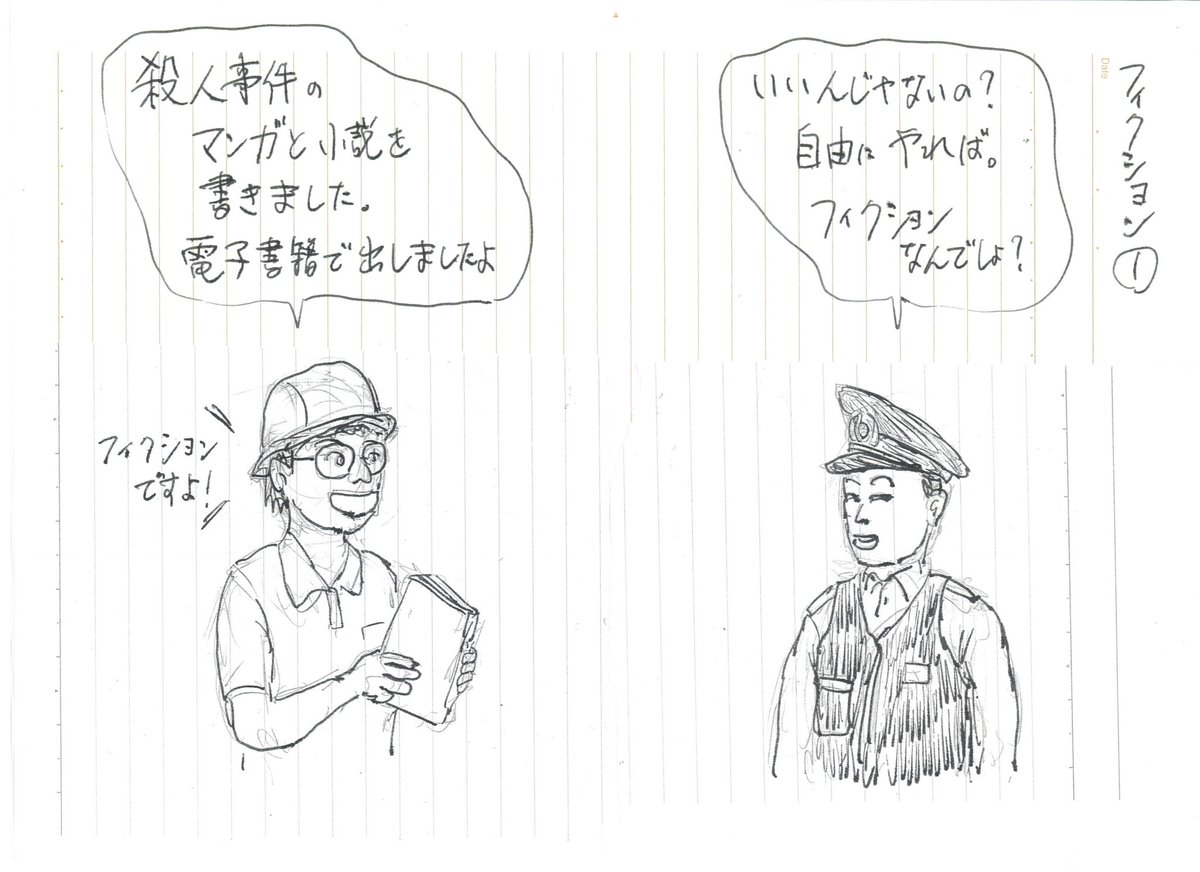 フィクション①
いいんじゃないの?
自由にやれば。
フィクション
なんでしょ?
殺人事件の
マンガと小説を
書きました。
電子書籍で出しましたよ
フィクション
ですよ!
Date